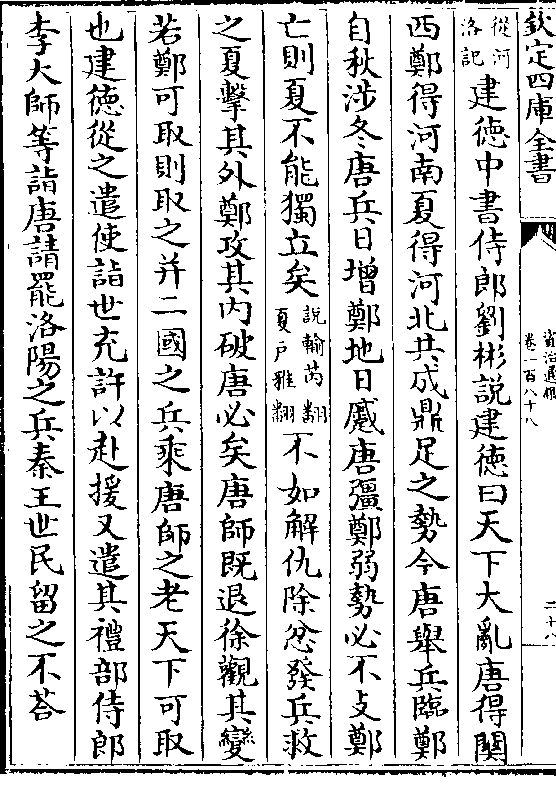 欽定四庫全書
資治通鑑
卷一百八十八
二十八
從河
洛記
建德中書侍郎劉彬說建德曰天下大亂唐得關
西鄭得河南夏得河北共成鼎足之勢今唐舉兵臨鄭
自秋涉冬唐兵日增鄭地日蹙唐彊鄭弱勢必不支鄭
亡則夏不能獨立矣
說輸芮翻
夏户雅翻
不如解仇除忿發兵救
之夏擊其外鄭攻其内破唐必矣唐師既退徐觀其變
若鄭可取則取之并二國之兵乘唐師之老天下可取
也建德從之遣使詣世充許以赴援又遣其禮部侍郎
李大師等詣唐請罷洛陽之兵秦王世民留之不荅